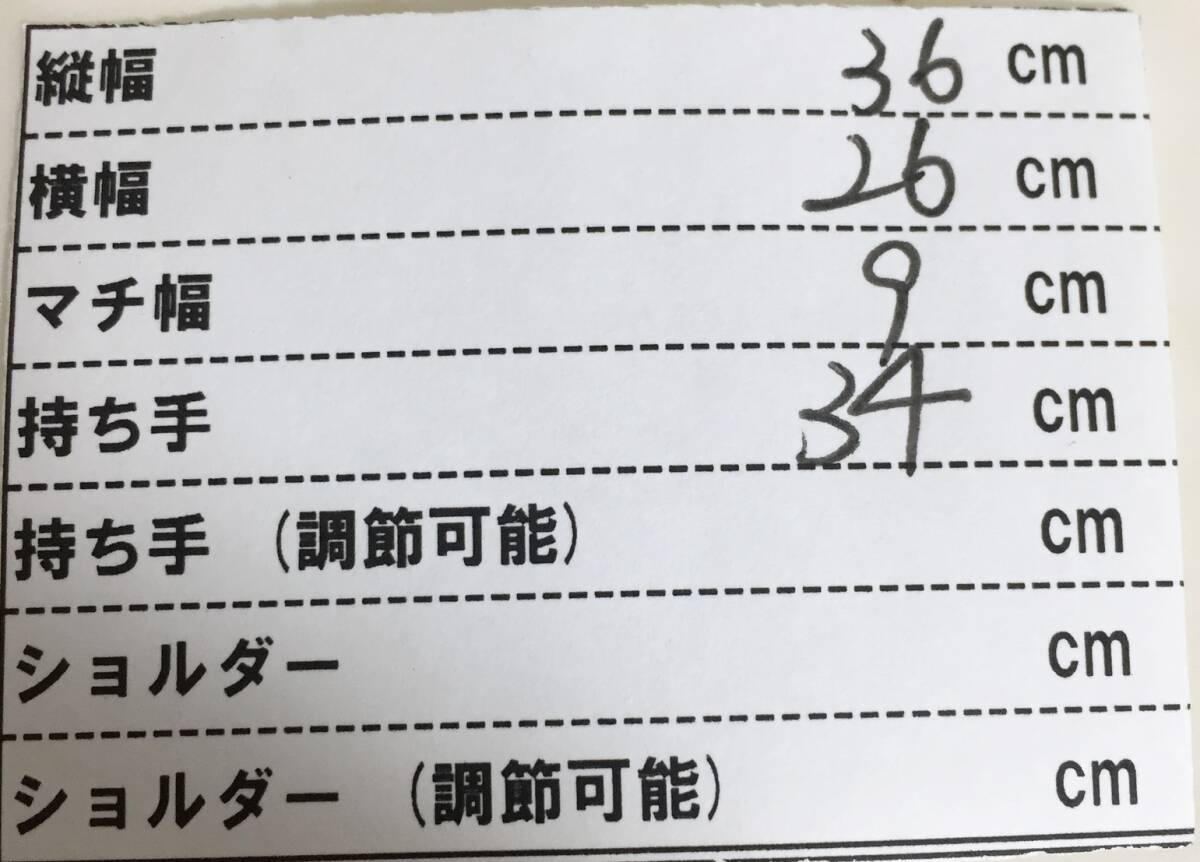 縦幅 36 cm
横幅 26 cm
マチ幅 9 cm
持ち手 34 cm
持ち手 (調節可能) cm
ショルダー cm
ショルダー (調節可能) cm